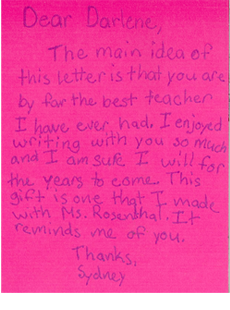 Dear Darlene,
The main idea of
this letter is that you are
by far the best teacher
I have ever had. I enjoyed
writing with you so much
and I am sure I will for
the years to come. This
gift is one that I made
with Ms. Rosenthal. It
reminds me of you.
Thanks,
Sydney